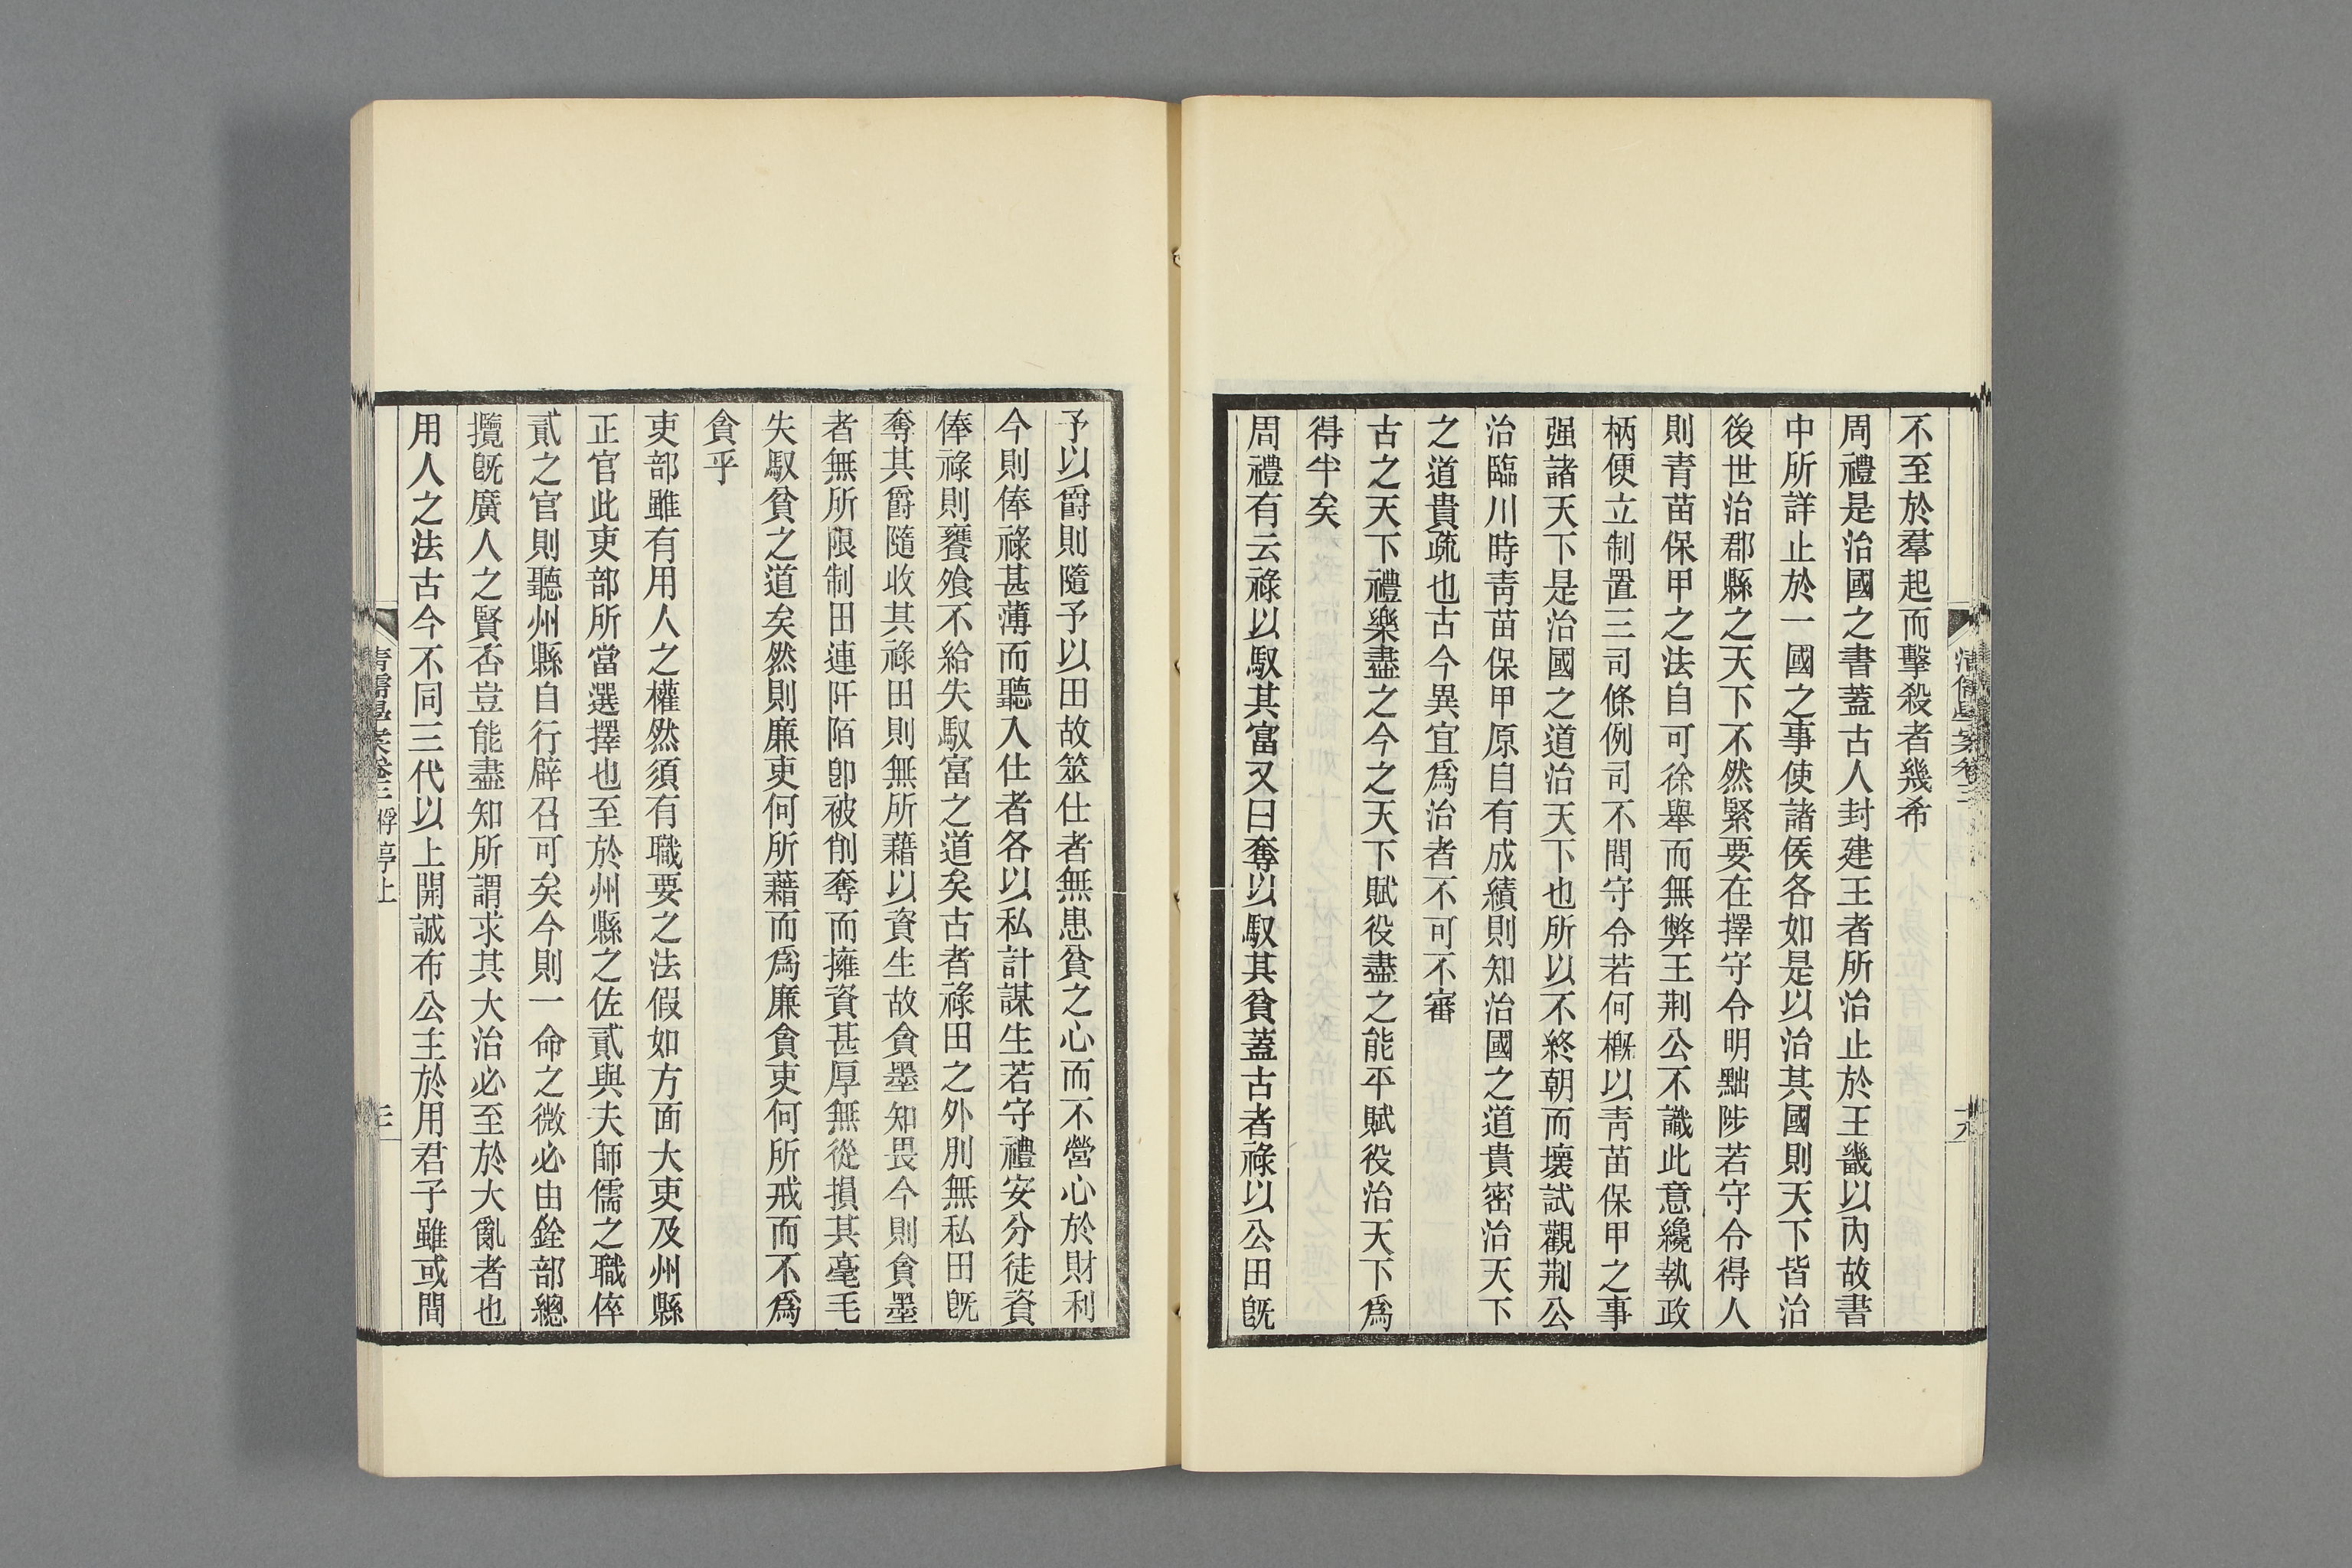 不至於羣起而擊殺者幾希
周禮是治國之書蓋古人封建王者所治止於王畿以內故書
中所詳止於一國之事使諸侯各如是以治其國則天下皆治
後世治郡縣之天下不然緊要在擇守令明黜陟若守令得人
則靑苗保甲之法自可徐舉而無弊王荆公不識此意纔執政
柄便立制置三司條例司不問守令若何槪以靑苗保甲之事
强諸天下是治國之道治天下也所以不終朝而壞試觀荆公
治臨川時靑苗保甲原自有成績則知治國之道貴密治天下
之道貴疏也古今異宜爲治者不可不審
古之天下禮樂盡之今之天下賦役盡之能平賦役治天下爲
得半矣
周禮有云祿以馭其富又曰奪以馭其貧蓋古者祿以公田旣
予以爵則隨予以田故筮仕者無患貧之心而不營心於財利
今則俸祿甚薄而聽入仕者各以私計謀生若守禮安分徒資
俸祿則饔飧不給失馭富之道矣古者祿田之外別無私田旣
奪其爵隨收其祿田則無所藉以資生故貪墨知畏今則貪墨
者無所限制田連阡陌卽被削奪而擁資甚厚無從損其毫毛
失馭貧之道矣然則廉吏何所藉而爲廉貪吏何所戒而不爲
貪乎
吏部雖有用人之權然須有職要之法假如方面大吏及州縣
正官此吏部所當選擇也至於州縣之佐貳與夫師儒之職倅
貳之官則聽州縣自行辟召可矣今則一命之微必由銓部總
攬旣廣人之賢否豈能盡知所謂求其大治必至於大亂者也
用人之法古今不同三代以上開誠布公主於用君子雖或間